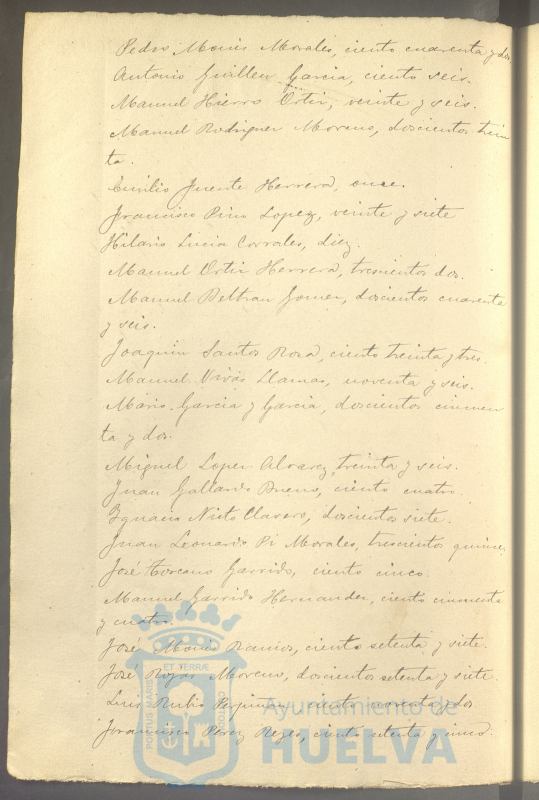 Pedro Monis Morales, ciento cuarenta y dos
Antonio Guillen Garcia, ciento seis.
Manuel Hierro Ortiz, veinte y seis.
Manuel Rodriguez Moreno, doscientos trein
ta.
Emilio Fuente Herrera, once.
Francisco Pino Lopez, veinte y siete
Hilario Lucia Corrales, diez.
Manuel Ortiz Herrera, trescientos dos.
Manuel Beltran Gomez, doscientos cuarenta
y seis.
Joaquin Santos Rosa, ciento treinta y tres.
Manuel Vivas Llamas, noventa y seis.
Mario Garcia y Garcia, doscientos cincuen
ta y dos.
Miguel Lopez Alvarez, treinta y seis.
Juan Gallardo Bueno, ciento cuatro.
Ygnacio Nieto Clavero, doscientos siete.
Juan Leonardo Pi Morales, trescientos quince,
José Toscano Garrido, ciento cinco.
Manuel Garrido Hernandez, ciento cincuenta
y cuatro.
José Monis Ramos, ciento setenta y siete.
José Rojas Moreno, doscientos setenta y siete.
Luis Rubio ciento y dos
Francisco Perez Reyes, ciento setenta y cinco.
PORTUS MARIS ET TERRÆ CUSTODIA
Ayuntamiento de
HUELVA